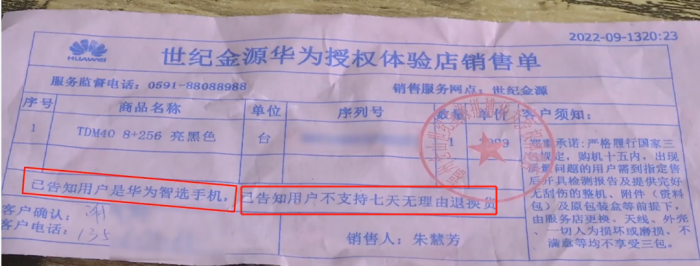 2022-09-1320:23
HUAWEI
世纪金源华为授权体验店销售单
服务监督电话: 0591-88088988
销售服务网点: 世纪金源
序号 商品名称 单位 序列号 数量 单价 客户须知:
1 TDM40 8+256 亮黑色 台 1
承诺:严格履行国家三
规定, 购机十五内, 出现
问题的用户需到指定售
后开具检测报告及提供完好
无刮伤的整机、附件(资料
包)及原包装盒等前提下,
由服务店更换。天线、外壳、
一切人为损坏或磨损、不
满意等均不享受三包。
已告知用户是华为智选手机, 已告知用户不支持七天无理由退换货
客户确认:
客户电话: 135
销售人: 朱慧芳